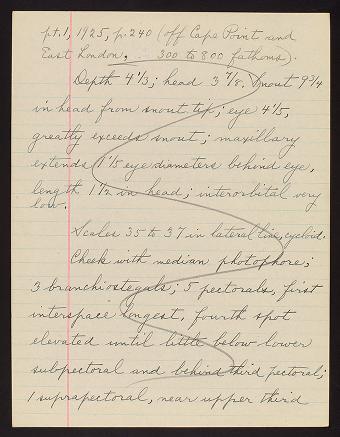 pt. 1, 1925, p. 240 (off Cape Point and
East London, 300 to 800 fathoms).
Depth 4 1/3; head 3 7/8. Snout 9 3/4
in head from snout tip; eye 4 1/5,
greatly exceeds snout; maxillary
extends 1 1/5 eye diameters behind eye,
length 1 1/2 in head; interorbital very
low.
Scales 35 to 37 in lateral line, cycloid.
Cheek with median photophore;
3 branchiostegals; 5 pectorals, first
interspace longest, fourth spot
elevated until little below lower
subpectoral and behind third pectoral;
1 suprapectoral, near upper third